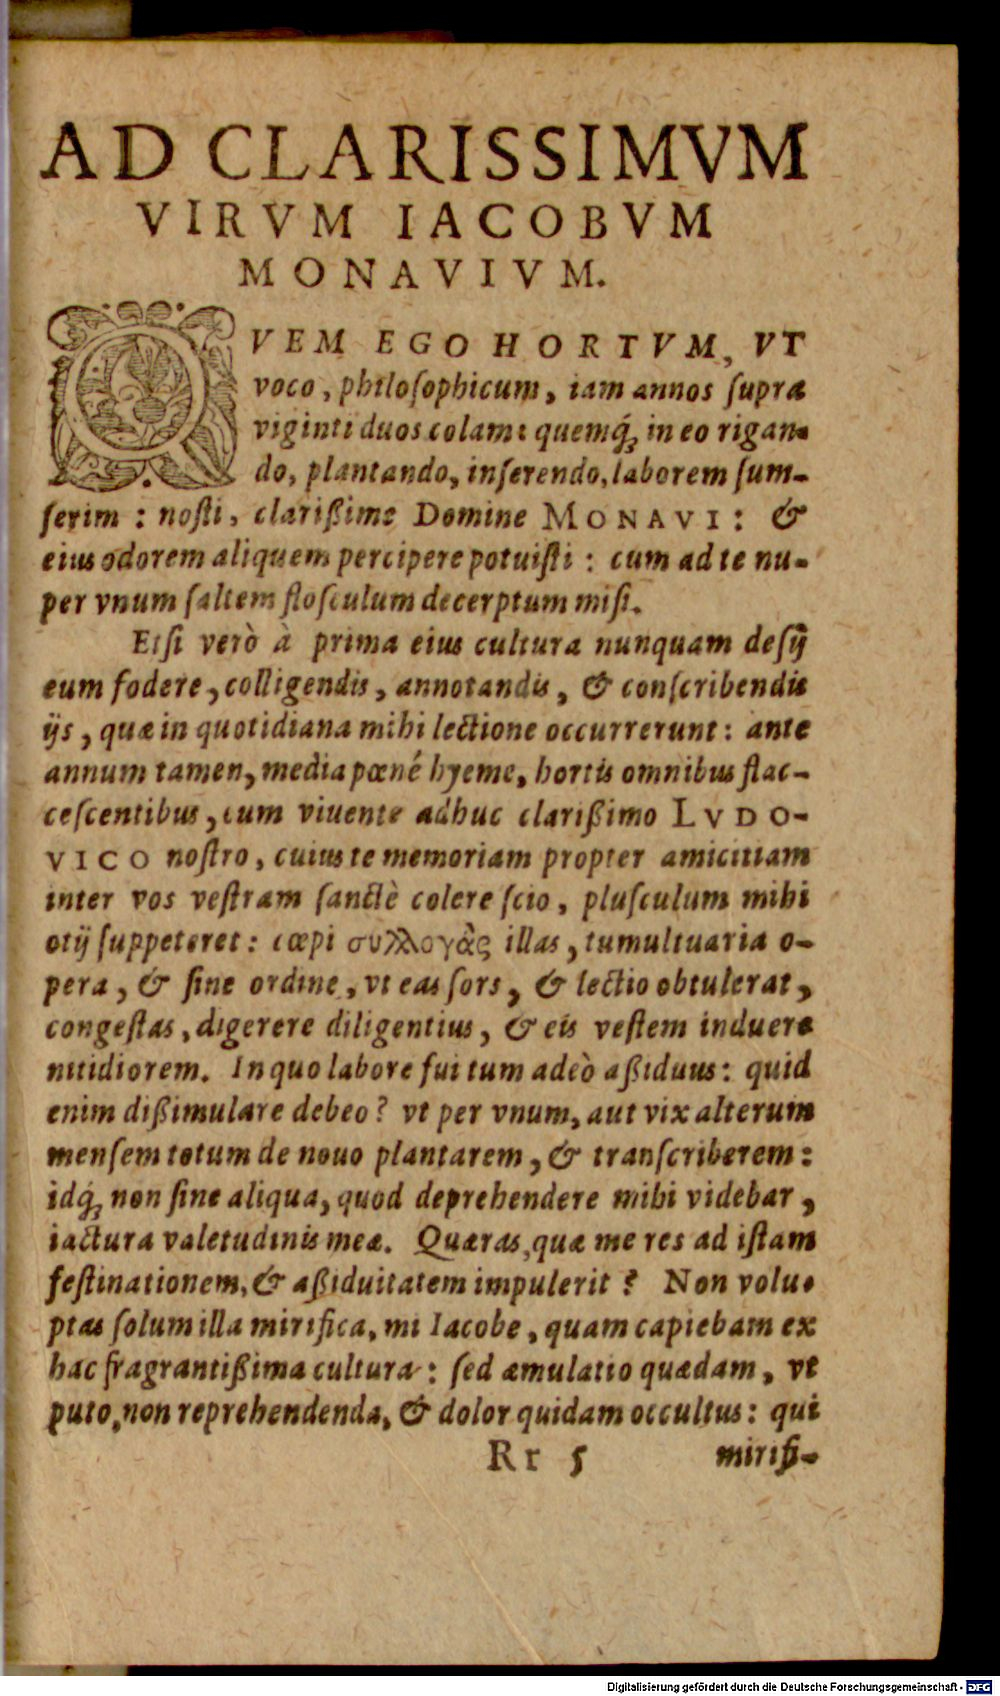 AD CLARISSIMVM
VIRVM IACOBVM
MONAVIVM.
QVEM EGO HORTVM, VT
voco, philoſophicum, iam annos ſupra
viginti duos colam: quemq́; in eo rigan-
do, plantando, inſerendo, laborem ſum-
ſerim: noſti, clarißime Domine MONAVI: &
eius odorem aliquem percipere potuiſti: cum ad te nu-
per vnum ſaltem floſculum decerptum miſi.
Etſi verò à prima eius cultura nunquam deſij
eum fodere, colligendis, annotandis, & conſcribendis
ijs, quæ in quotidiana mihi lectione occurrerunt: ante
annum tamen, media pœné hyeme, hortis omnibus flac-
ceſcentibus, cum viuente adhuc clarißimo LVDO-
VICO noſtro, cuius te memoriam propter amicitiam
inter vos veſtram ſanctè colere ſcio, pluſculum mihi
otij ſuppeteret: cœpi συλλογὰς illas, tumultuaria o-
pera, & ſine ordine, vt eas ſors, & lectio obtulerat,
congeſtas, digerere diligentius, & eis veſtem induere
nitidiorem. In quo labore fui tum adeò aßiduus: quid
enim dißimulare debeo? vt per vnum, aut vix alterum
menſem totum de nouo plantarem, & tranſcriberem:
idq́; non ſine aliqua, quod deprehendere mihi videbar,
iactura valetudinis meæ. Quæras, quæ me res ad iſtam
feſtinationem, & aßiduitatem impulerit? Non volu-
ptas ſolum illa mirifica, mi Iacobe, quam capiebam ex
hac fragrantißima cultura: ſed æmulatio quædam, vt
puto, non reprehendenda, & dolor quidam occultus: qui
Rr 5 mirifi-
Digitalisierung gefördert durch die Deutsche Forschungsgemeinschaft - DFG